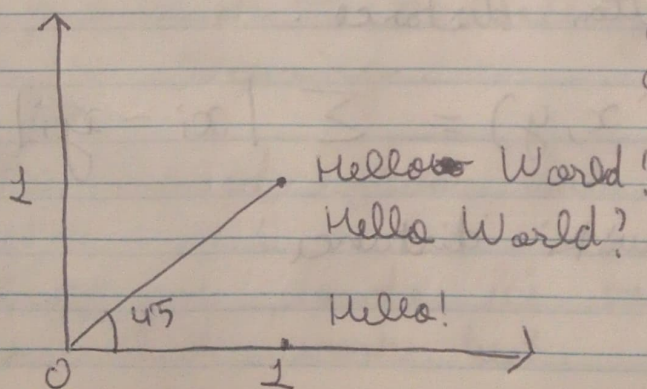 1
Hello World!
Hello World?
Hello!
45
0
1